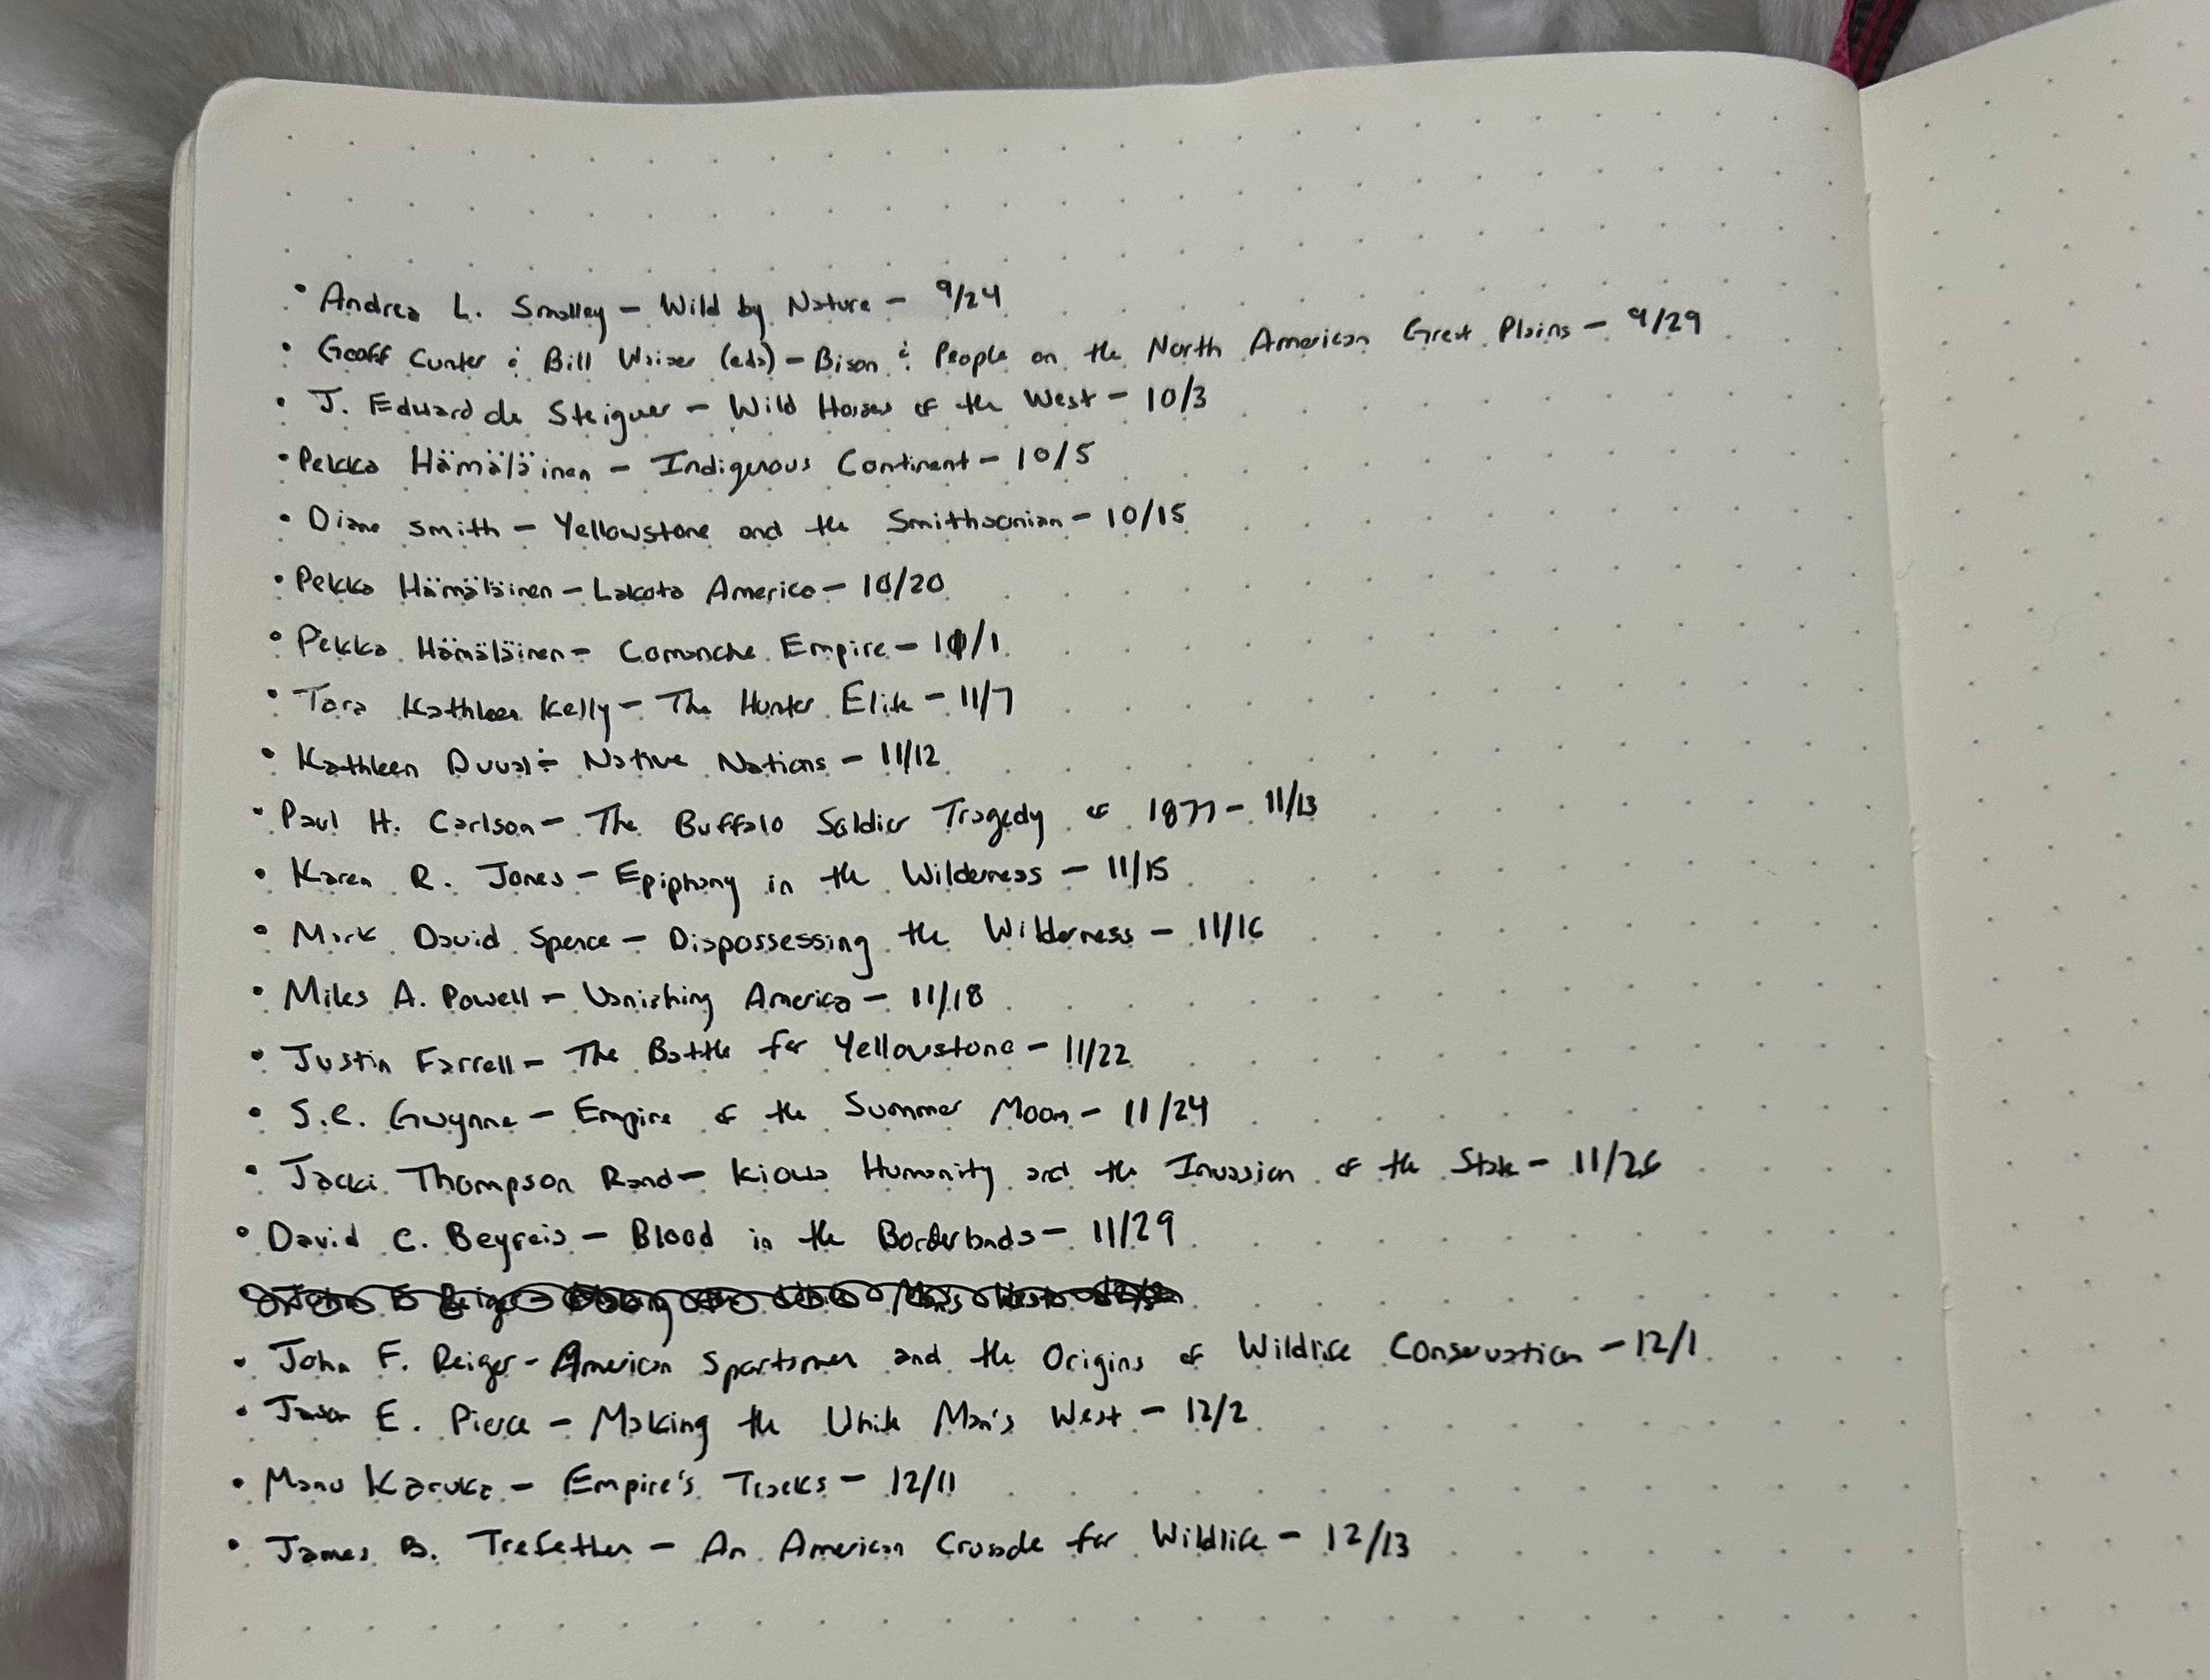 • Andrea L. Smalley – Wild by Nature – 9/24
• Geoff Cunfer & Bill Waiser (eds) – Bison & People on the North American Great Plains – 9/29
• J. Edward de Steiguer – Wild Horses of the West – 10/3
• Pekka Hämäläinen – Indigenous Continent – 10/5
• Diane Smith – Yellowstone and the Smithsonian – 10/15
• Pekka Hämäläinen – Lakota America – 10/20
• Pekka Hämäläinen – Comanche Empire – 11/1
• Tara Kathleen Kelly – The Hunter Elite – 11/7
• Kathleen Duval – Native Nations – 11/12
• Paul H. Carlson – The Buffalo Soldier Tragedy of 1877 – 11/13
• Karen R. Jones – Epiphany in the Wilderness – 11/15
• Mark David Spence – Dispossessing the Wilderness – 11/16
• Miles A. Powell – Vanishing America – 11/18
• Justin Farrell – The Battle for Yellowstone – 11/22
• S.C. Gwynne – Empire of the Summer Moon – 11/24
• Jacki Thompson Rand – Kiowa Humanity and the Invasion of the State – 11/26
• David C. Beyreis – Blood in the Borderlands – 11/29
• John F. Reiger – American Sportsmen and the Origins of Wildlife Conservation – 12/1
• Jason E. Pierce – Making the White Man's West – 12/2
• Manu Karuka – Empire's Tracks – 12/11
• James B. Trefethen – An American Crusade for Wildlife – 12/13